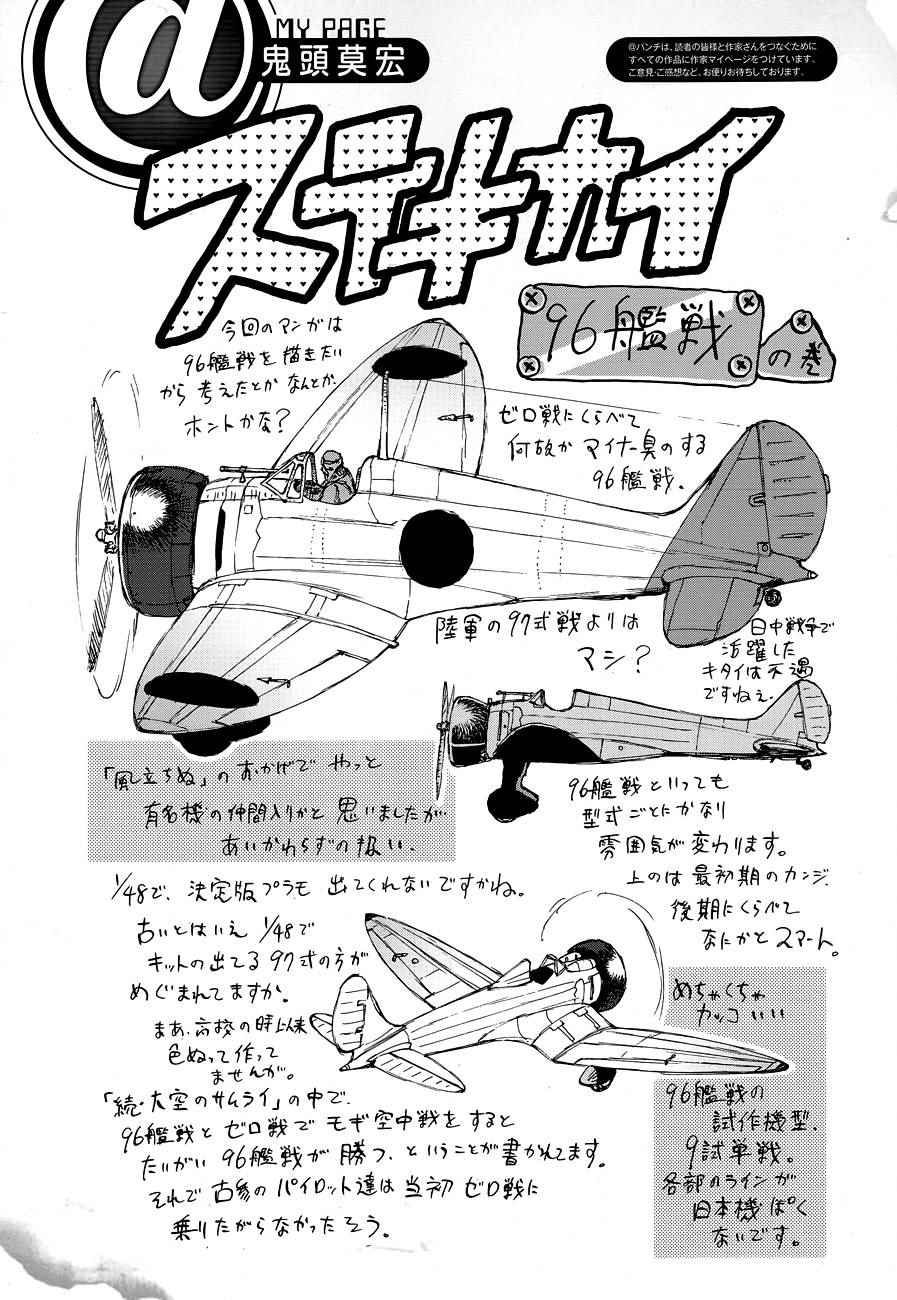 @
MY PAGE
鬼頭莫宏
@バンチは、読者の皆様と作家さんをつなぐために
すべての作品に作家マイページをつけています。
ご意見・ご感想など、お便りお待ちしております。
ステキカイ
96艦戦
の巻
今回のマンガは
96艦戦を描きたい
から考えたとかなんとか。
ホントかな?
ゼロ戦にくらべて
何故かマイナー臭のする
96艦戦.
陸軍の97式戦よりは
マシ?
日中戦争で
活躍した
キタイは不遇
ですねぇ.
「風立ちぬ」のおかげでやっと
有名機の仲間入りかと思いましたが…
あいかわらずの扱い.
96艦戦といっても
型式ごとにかなり
雰囲気が変わります。
上のは最初期のカンジ.
後期にくらべて
なにかとスマート。
1/48で、決定版プラモ出てくれないですかね。
古いとはいえ1/48で
キットの出てる97式の方が
めぐまれてますか。
まあ、高校の時以来
色ぬって作って
ませんが。
めちゃくちゃ
カッコいい
96艦戦の
試作機型.
9試単戦。
各部のラインが
日本機ぽく
ないです。
「続・大空のサムライ」の中で、
96艦戦とゼロ戦でモギ空中戦をすると
たいがい96艦戦が勝つ、ということが書かれてます。
それで古参のパイロット達は当初ゼロ戦に
乗りたがらなかったそう。